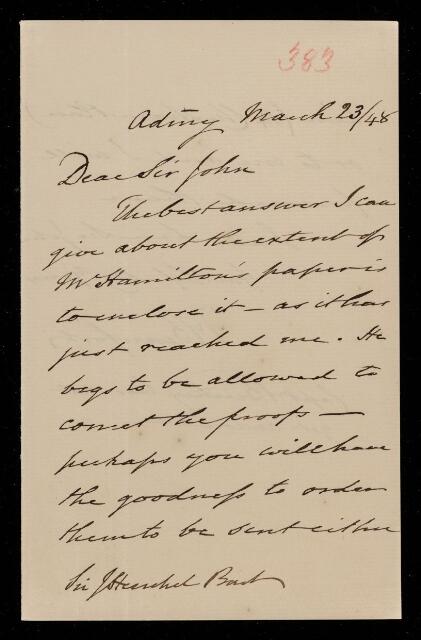 383
Admty March 23/48
Dear Sir John
The best answer I can
give about the extent of
Mr Hamilton's paper is
to enclose it – as it has
just reached me. He
begs to be allowed to
correct the proofs –
perhaps you will have
the goodness to order
them to be sent either
Sir J Herschel Bart